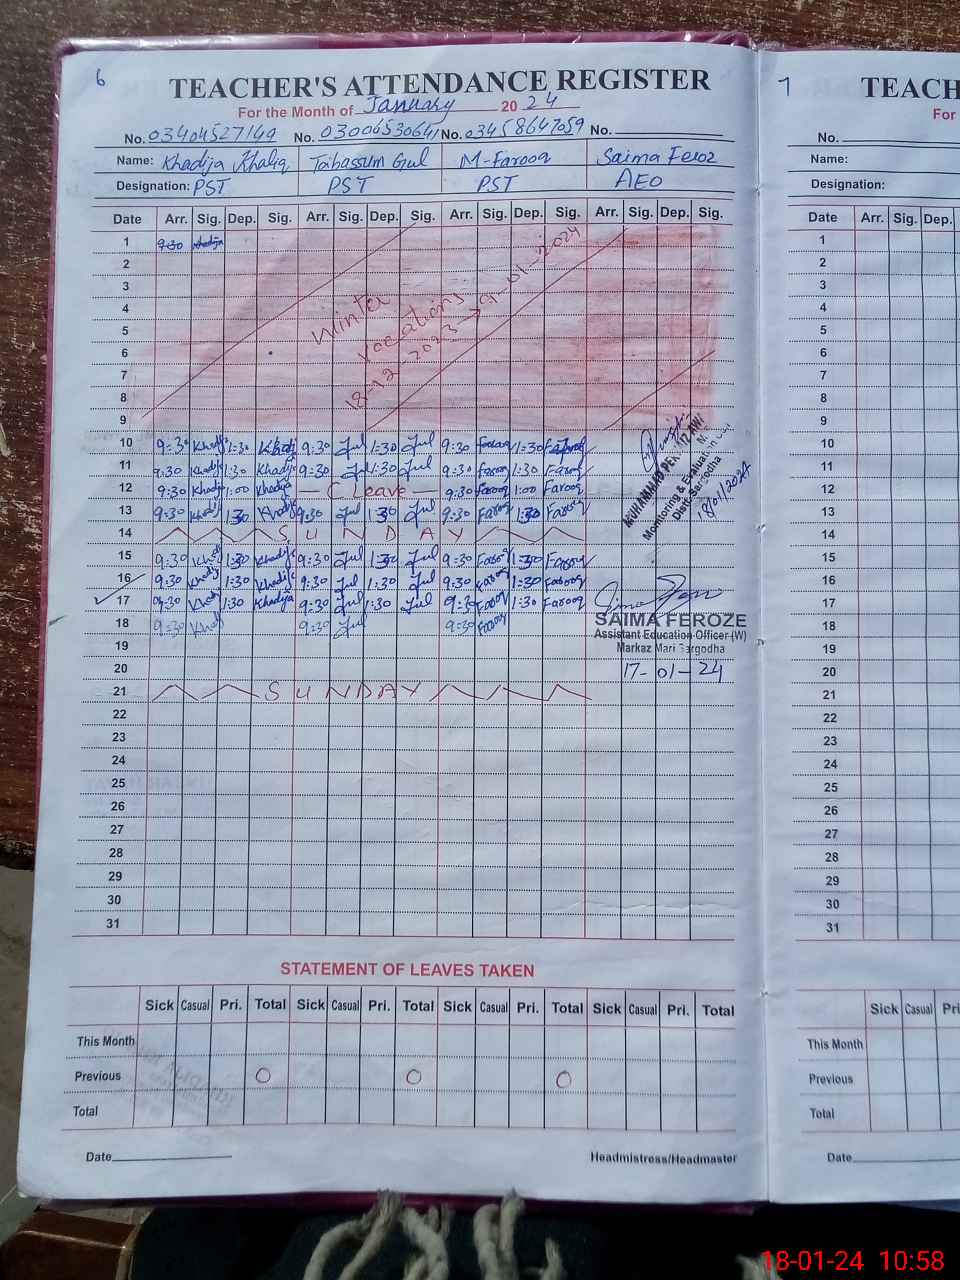 6
TEACHER'S ATTENDANCE REGISTER
For the Month of January 2024
No. 03404527149 No. 03006530641 No. 03458647059 No.
Name: Khadija Khaliq Tabassum Gul M-Farooq Saima Feroz
Designation: PST PST PST AEO
Date Arr. Sig. Dep. Sig. Arr. Sig. Dep. Sig. Arr. Sig. Dep. Sig. Arr. Sig. Dep. Sig.
1 9:30 Khadija
2
3
4
5
6
7
8
9
Winter
Vacations
18-12-2023 → 9-01-2024
10 9:30 Khadija 1:30 Khadija 9:30 Gul 1:30 Gul 9:30 Farooq 1:30 Farooq
11 9:30 Khadija 1:30 Khadija 9:30 Gul 1:30 Gul 9:30 Farooq 1:30 Farooq
12 9:30 Khadija 1:00 Khadija C Leave 9:30 Farooq 1:00 Farooq
13 9:30 Khadija 1:30 Khadija 9:30 Gul 1:30 Gul 9:30 Farooq 1:30 Farooq
14 SUNDAY
15 9:30 Khadija 1:30 Khadija 9:30 Gul 1:30 Gul 9:30 Farooq 1:30 Farooq
16 9:30 Khadija 1:30 Khadija 9:30 Gul 1:30 Gul 9:30 Farooq 1:30 Farooq
17 9:30 Khadija 1:30 Khadija 9:30 Gul 1:30 Gul 9:30 Farooq 1:30 Farooq
18 9:30 Khadija 9:30 Gul 9:30 Farooq
19
20
21 SUNDAY
22
23
24
25
26
27
28
29
30
31
MUHAMMAD
Monitoring & Evaluation
Distt. Sargodha
18/01/2024
SAIMA FEROZE
Assistant Education Officer (W)
Markaz Mari Sargodha
17-01-24
STATEMENT OF LEAVES TAKEN
Sick Casual Pri. Total Sick Casual Pri. Total Sick Casual Pri. Total Sick Casual Pri. Total
This Month
Previous 0 0 0
Total
Date Headmistress/Headmaster
7
TEACH
For
No.
Name:
Designation:
Date Arr. Sig. Dep.
1
2
3
4
5
6
7
8
9
10
11
12
13
14
15
16
17
18
19
20
21
22
23
24
25
26
27
28
29
30
31
Sick Casual Pri
This Month
Previous
Total
Date
18-01-24 10:58